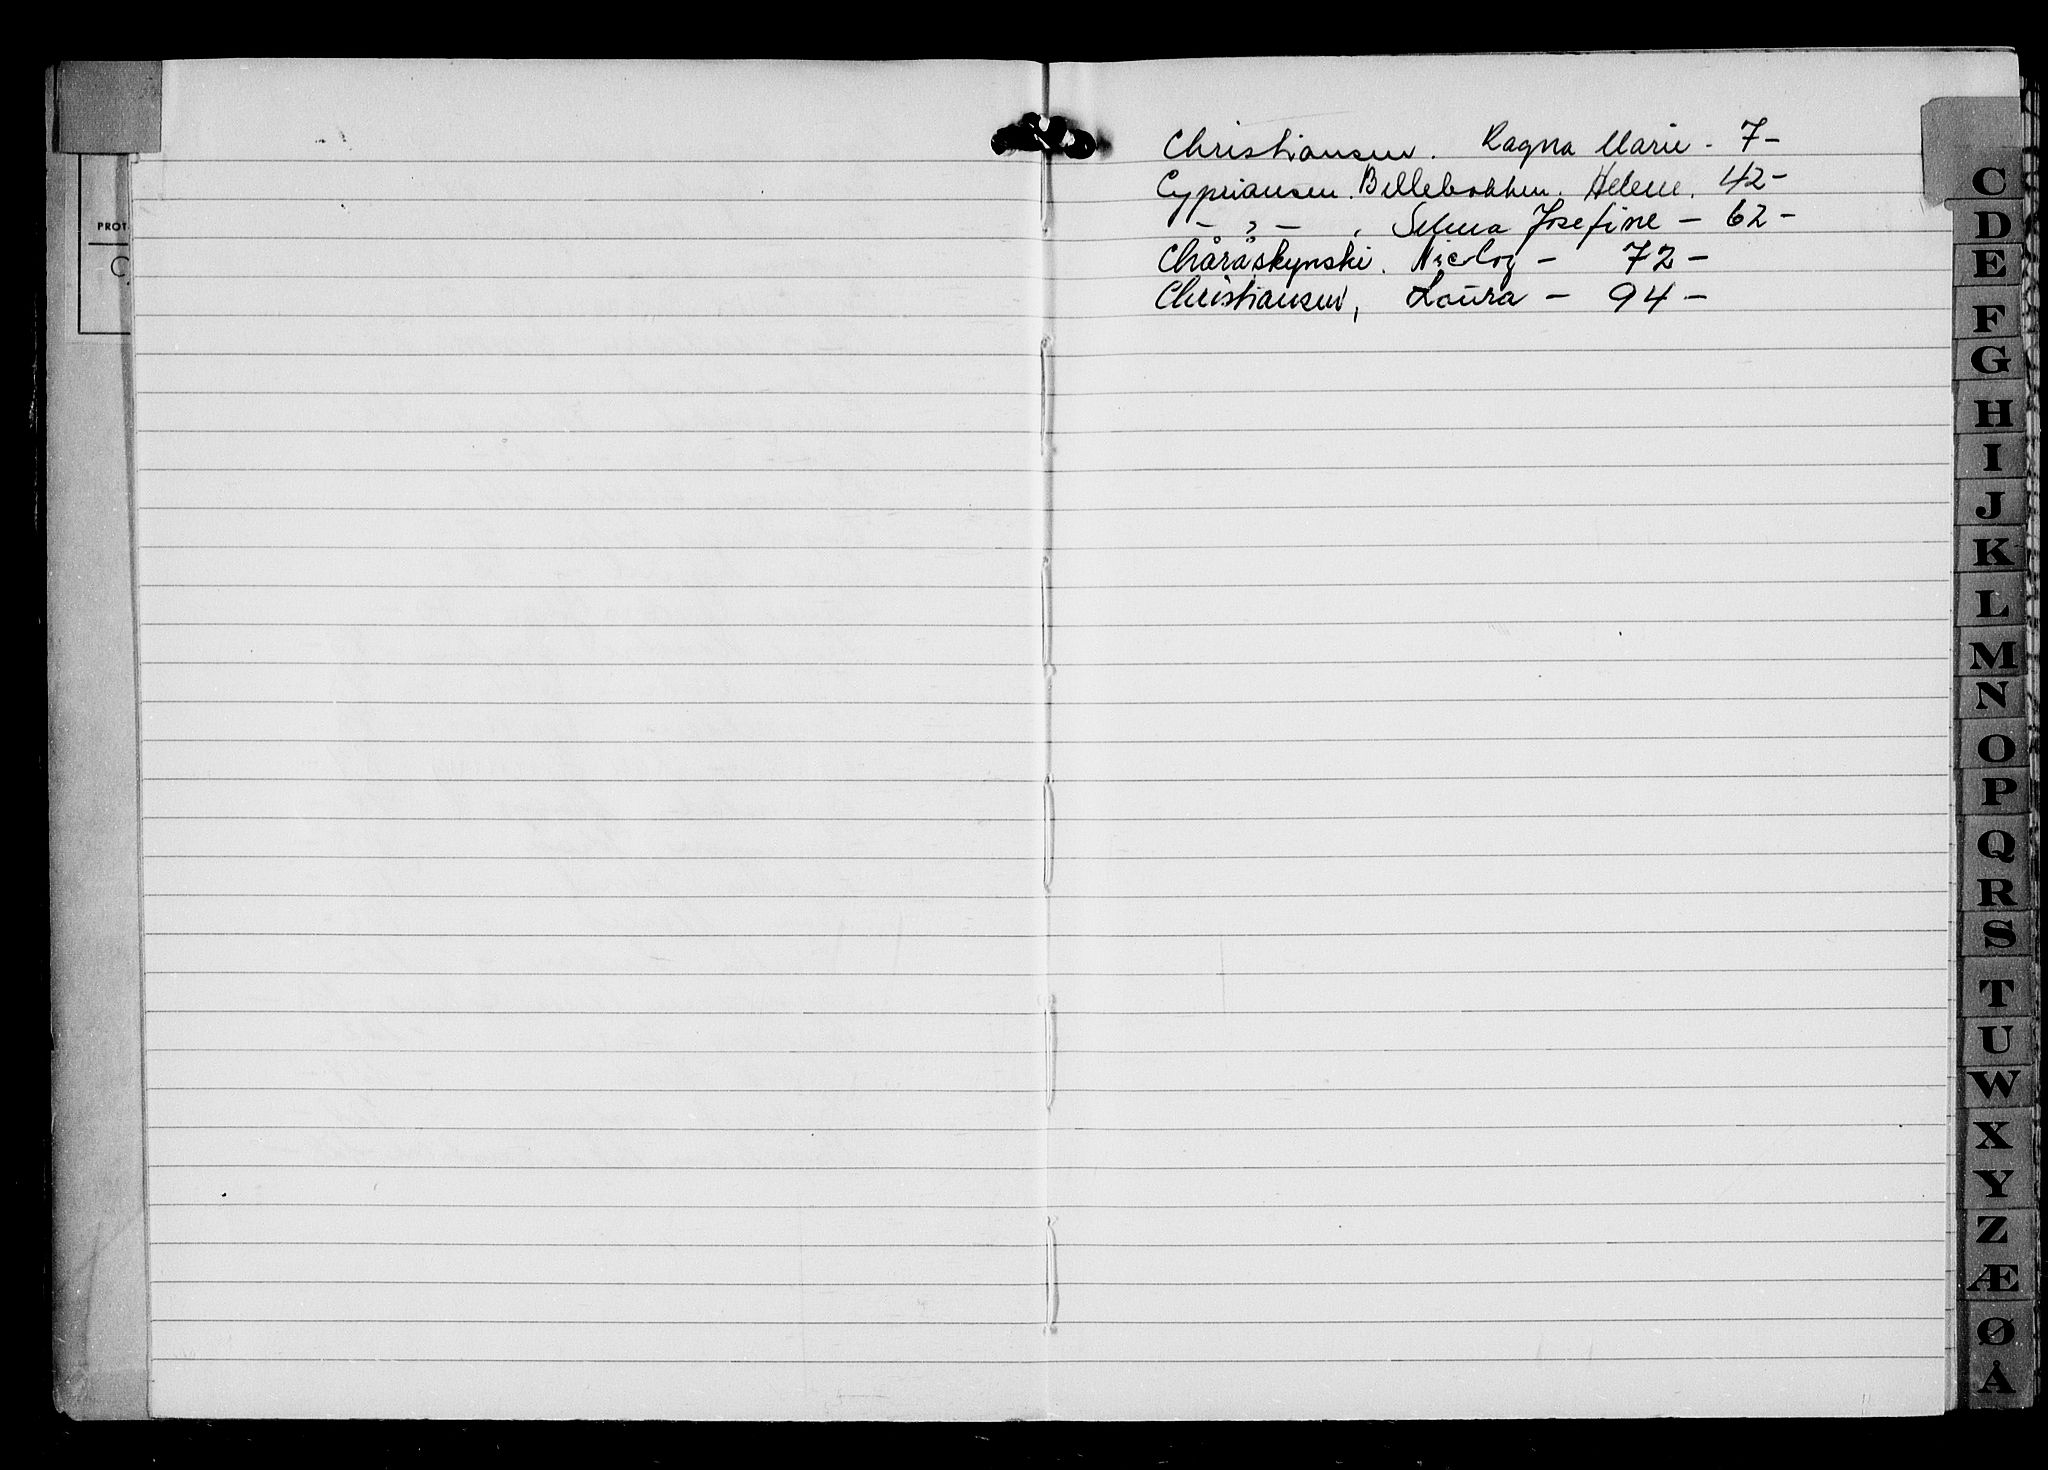 PROT
C
Christiansen. Ragna Marie - 7-
Cypriansen. Billebakken. Helene. 42-
- " - , Selma Josefine - 62-
Chåråskynski. Nicloy - 72-
Christiansen, Laura - 94-
C
D
E
F
G
H
I
J
K
L
M
N
O
P
Q
R
S
T
U
W
X
Y
Z
Æ
Ø
Å